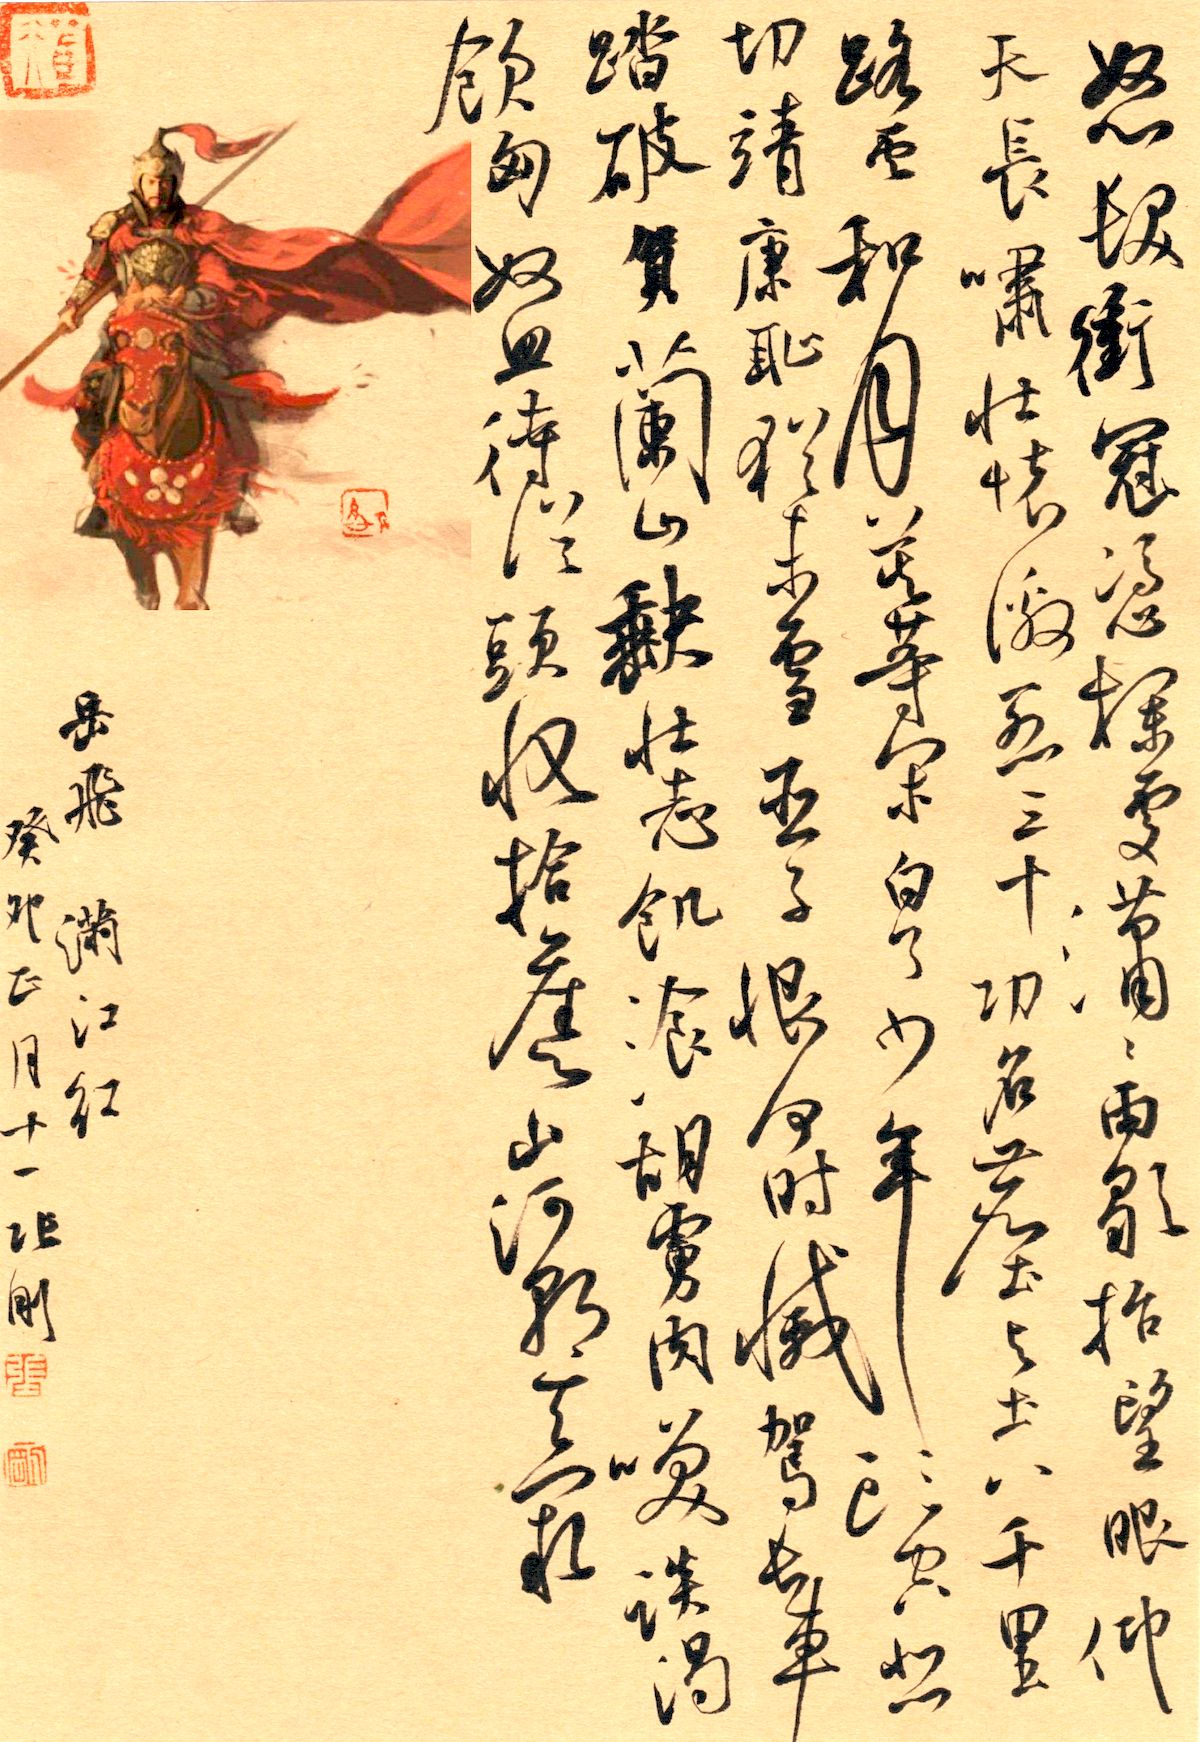 怒髮衝冠憑欄處瀟々雨歇抬望眼仰
天長嘯壯懷激烈三十功名塵與土八千里
路雲和月莫等閑白了少年頭空悲
切靖康恥猶未雪臣子恨何时滅駕長車
踏破賀蘭山缺壯志飢飡胡虜肉笑談渴
飲匈奴血待從頭收拾舊山河朝天闕
岳飛 滿江紅
癸卯正月十一 張剛